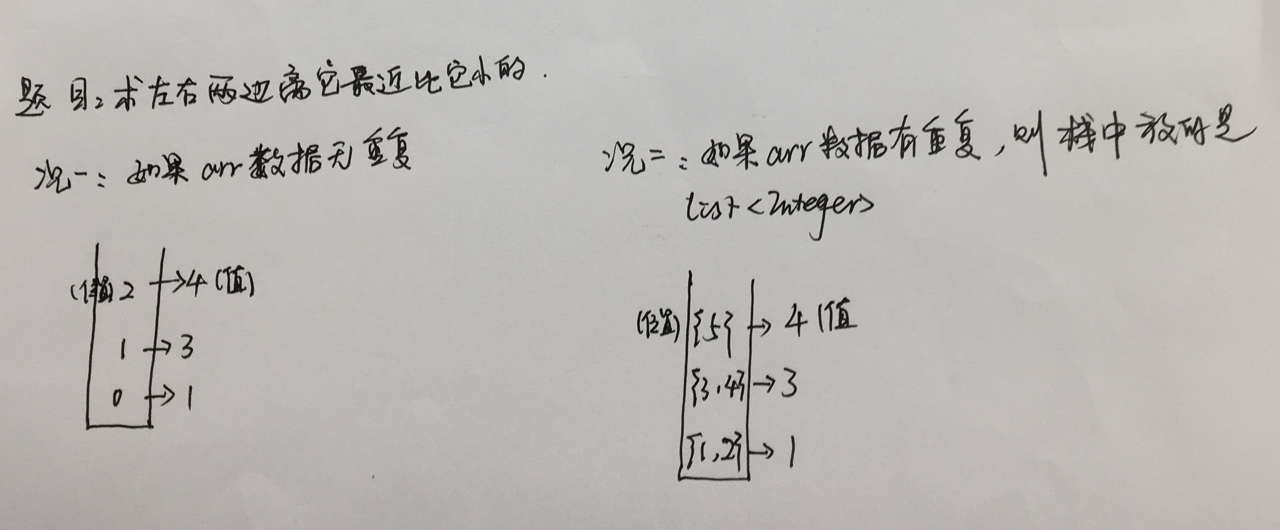 题目：求左右两边离它最近比它小的.
况一：如果arr数据无重复
(位置) 2 →4 (值)
1 →3
0 →1
况二：如果arr数据有重复，则栈中放的是
List<Integer>
(位置) {5} → 4 (值
{3,4} → 3
{1,2} → 1